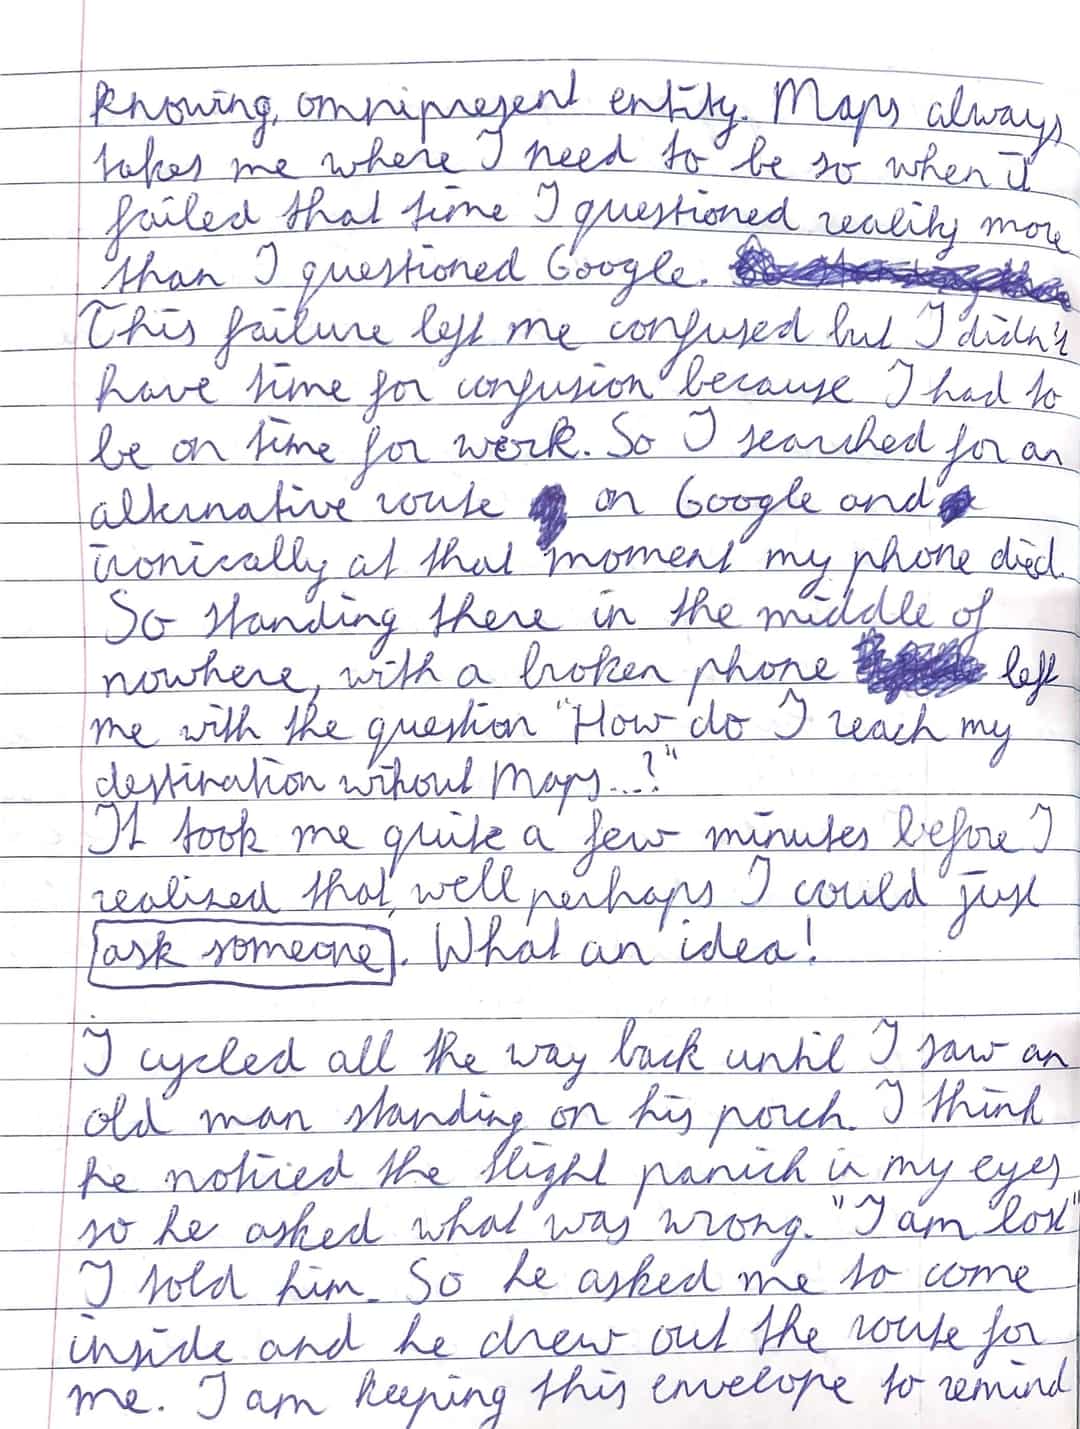 knowing, omnipresent entity. Maps always
takes me where I need to be so when it
failed that time I questioned reality more
than I questioned Google.
This failure left me confused but I didn't
have time for confusion because I had to
be on time for work. So I searched for an
alternative route on Google and
ironically at that moment my phone died.
So standing there in the middle of
nowhere, with a broken phone left
me with the question "How do I reach my
destination without Maps...?"
It took me quite a few minutes before I
realized that, well perhaps I could just
ask someone. What an idea!
I cycled all the way back until I saw an
old man standing on his porch. I think
he noticed the slight panich in my eyes
so he asked what was wrong. "I am lost"
I told him. So he asked me to come
inside and he drew out the route for
me. I am keeping this envelope to remind